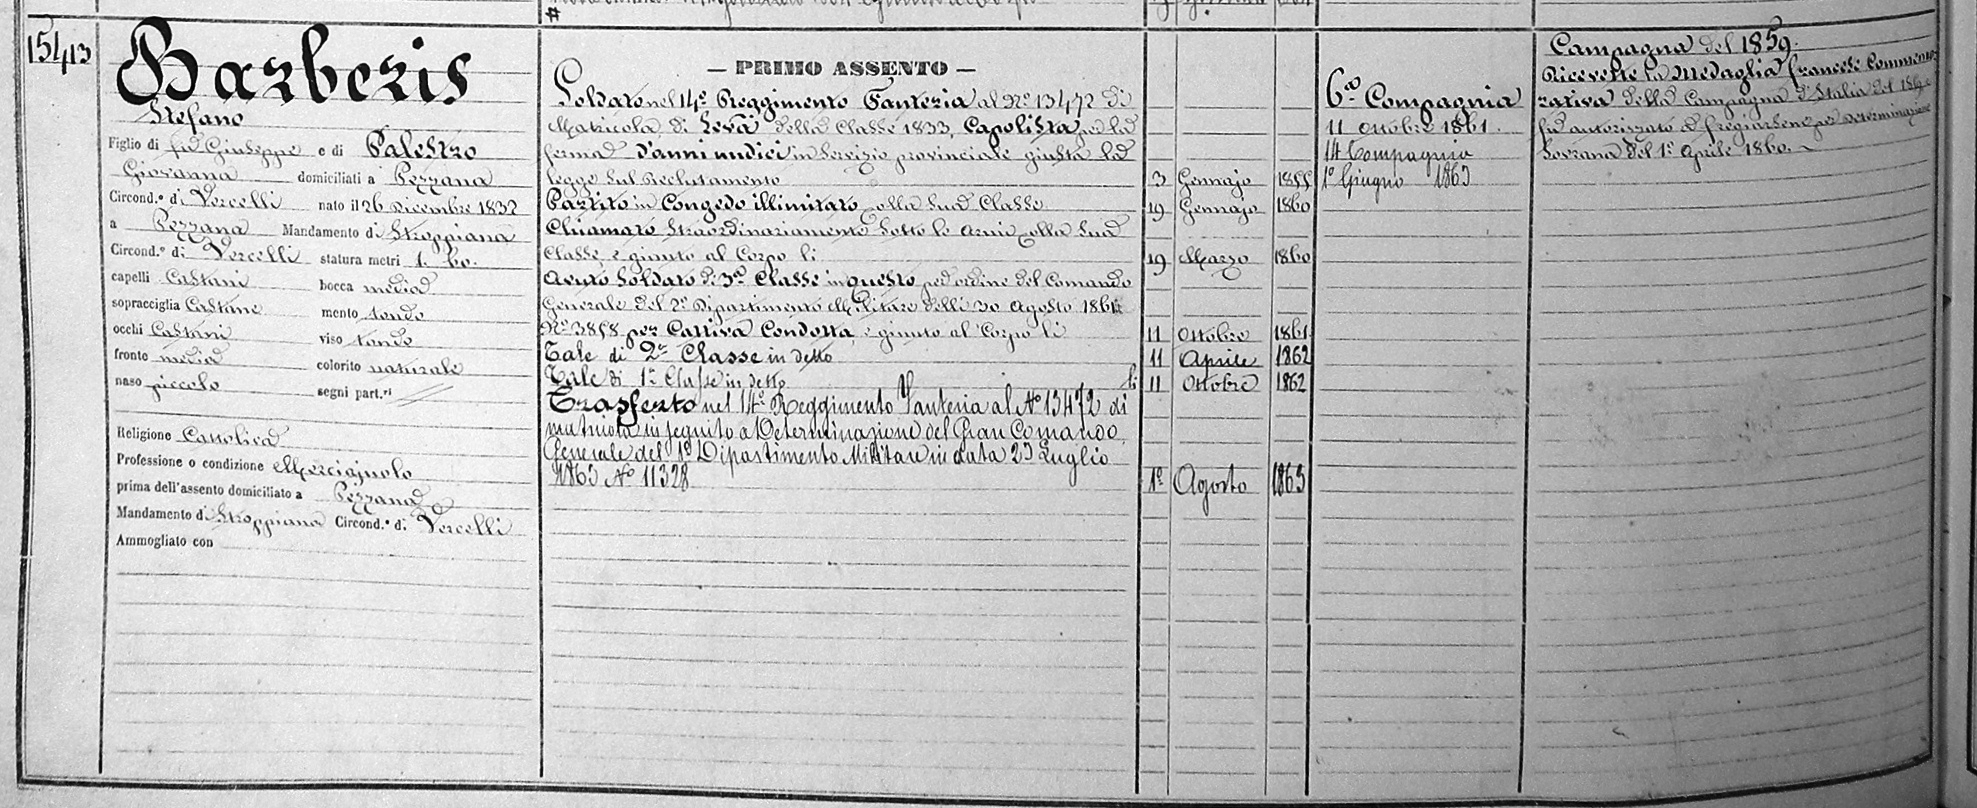 15413
Barberis
Stefano
Figlio di fu Giuseppe e di Palestro
Giovanna domiciliati a Pezzana
Circond.° di Vercelli nato il 26 Dicembre 1832
a Pezzana Mandamento di Stroppiana
Circond.° di Vercelli statura metri 1. 60.
capelli Castani bocca media
sopracciglia Castane mento tondo
occhi Castani viso tondo
fronte media colorito naturale
naso piccolo segni part.ri
Religione Cattolica
Professione o condizione Merciajuolo
prima dell'assento domiciliato a Pezzana
Mandamento di Stroppiana Circond.° di Vercelli
Ammogliato con
#
— PRIMO ASSENTO —
Soldato nel 14° Reggimento Fanteria al N° 13472 di
Matricola, di Leva della Classe 1833, Capolista per la
ferma d'anni undici in servizio provinciale giusta la
legge sul Reclutamento 3 Gennajo 1855
Partito in Congedo illimitato colla sua Classe 19 Gennajo 1860
Chiamato straordinariamente sotto le armi colla sua
Classe e giunto al Corpo li 19 Marzo 1860
Avuto Soldato di 3a Classe in questo per ordine del Comando
Generale del 2° Dipartimento Militare delli 30 Agosto 1861
N° 3858 per Cattiva Condotta, e giunto al Corpo li 11 Ottobre 1861
Tale di 2a Classe in detto 11 Aprile 1862
Tale di 1a Classe in detto li 11 Ottobre 1862
Trasferto nel 14° Reggimento Fanteria al N° 13472 di
matricola in seguito a Determinazione del Gran Comando
Generale del 1° Dipartimento Militare in data 23 Luglio
1863 N° 11328 1° Agosto 1863
6a Compagnia
11 Ottobre 1861.
14 Compagnia
1° Giugno 1863
Campagna del 1859.
Ricevette la Medaglia francese Commemo-
rativa della Campagna d'Italia del 1859 e
fu autorizzato a fregiarsene per Determinazione
Sovrana del 1° Aprile 1860.